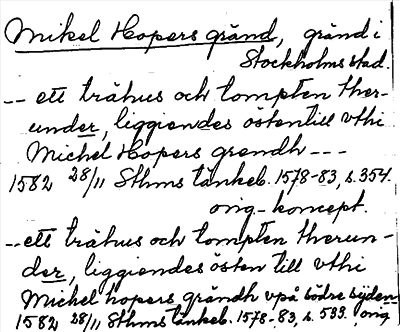 Mikel Hopers gränd, gränd i
Stockholms stad.
-- ett trähus och tompten ther-
under, liggiendes östentill vthi
Michel Hopers grendh ---
1582 28/11 Sthms tänkeb. 1578-83, s. 354.
orig.-koncept.
-- ett trähus och tompten therun-
der, liggiendes östen till vthi
Michel hopers grändh vpå södre sijden
1582 28/11 Sthms tänkeb. 1578-83, s. 533. orig.